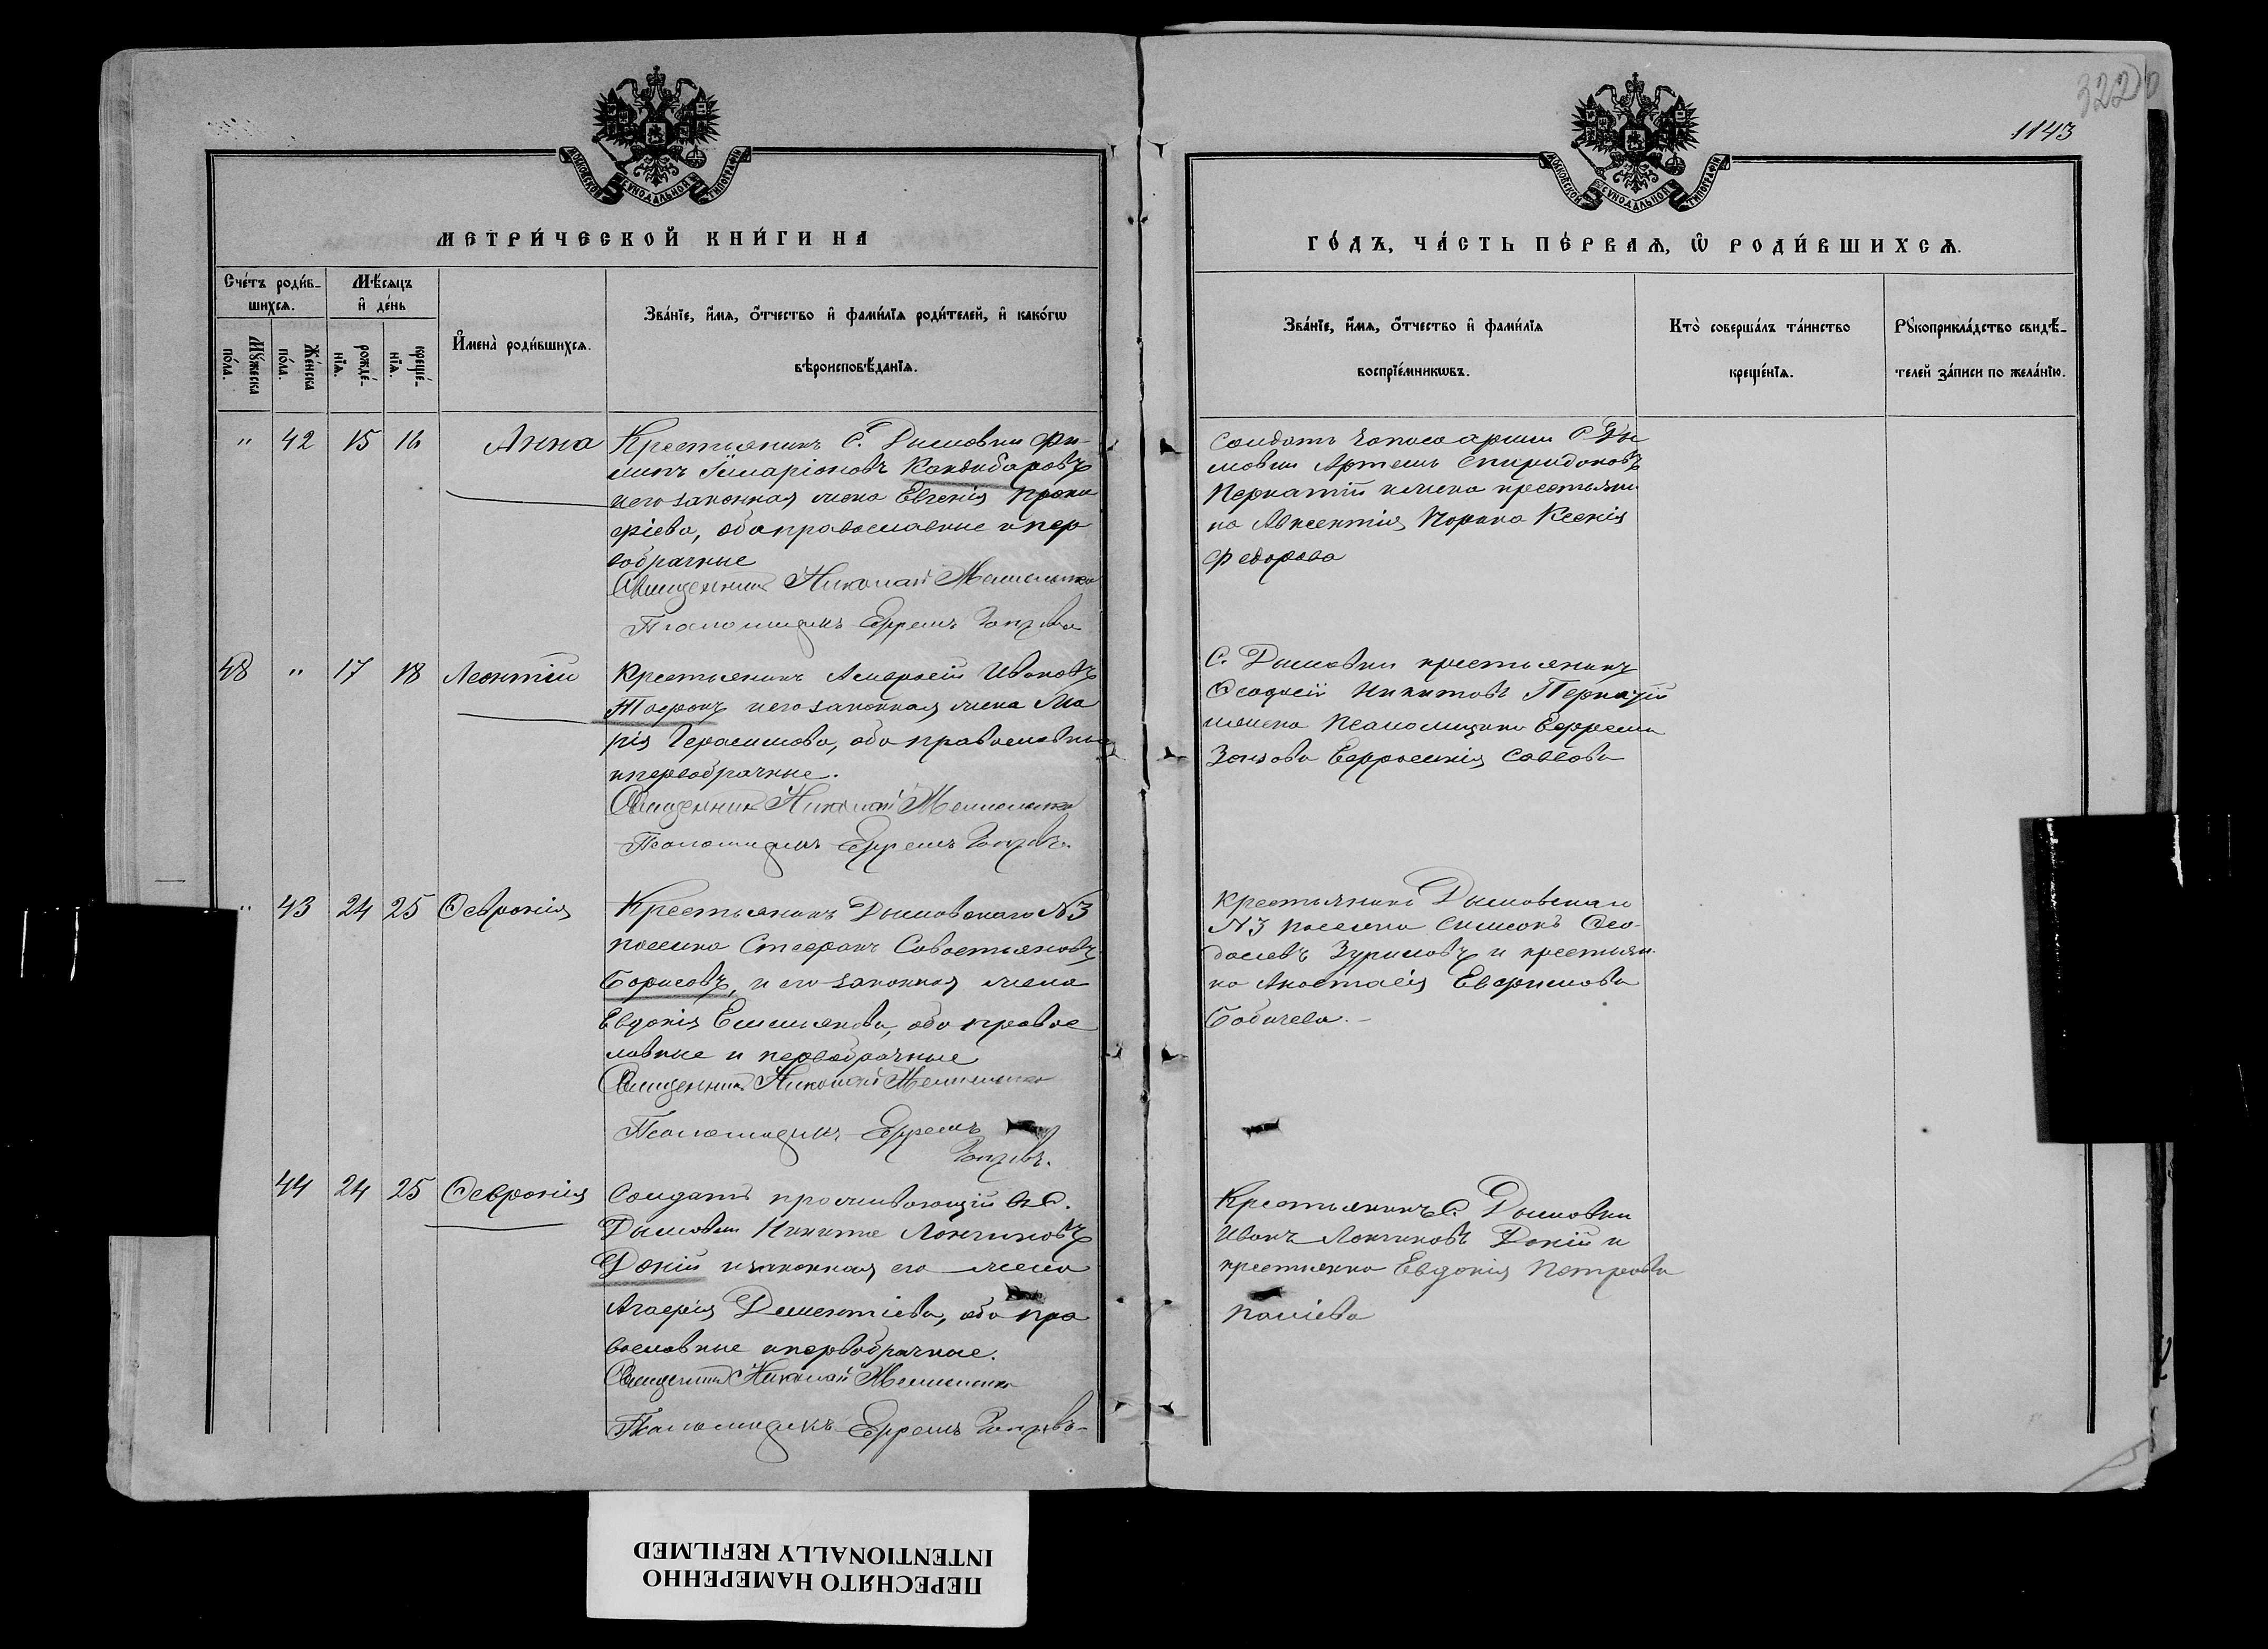 322
1143
МОСКОВСКОЙ СѴНОДАЛЬНОЙ ТИПОГРАФІИ
МОСКОВСКОЙ СѴНОДАЛЬНОЙ ТИПОГРАФІИ
МЕТРИ́ЧЕСКОЙ КНИ́ГИ НА
ГО́ДЪ, ЧА́СТЬ ПЕ́РВАѦ, Ѡ҆ РОДИ́ВШИХСѦ.
Сче́тъ роди́в-
шихсѧ.
Мѣ́сѧцъ
и҆ де́нь
Мꙋ́жеска
по́ла.
Же́нска
по́ла.
рожде́-
нїѧ.
креще́-
нїѧ.
И҆мена̀ роди́вшихсѧ.
Зва́нїе, и҆́мѧ, ѻ҆́тчество и҆ фами́лїѧ роди́телей, и҆ како́гѡ
вѣроисповѣ́данїѧ.
Зва́нїе, и҆́мѧ, ѻ҆́тчество и҆ фами́лїѧ
воспрїе́мникѡвъ.
Кто̀ соверша́лъ та́инство
креще́нїѧ.
Рꙋкоприкла́дство свидѣ́-
телей за́писи по жела́нїю.
" 42 15 16 Анна
Крестьянинъ С. Дымовки Фи-
липъ Иларіоновъ Кандибаровъ
и его законная жена Евгенія Проко
фіева, оба православные и пер
вобрачные
Священникъ Николай
Псаломщикъ Ефремъ
Солдатъ запаса арміи С. Ды
мовки Артемъ Спиридоновъ
Пернатій и жена крестьяни
на Авксентія Ксенія
Федорова
48 " 17 18 Леонтій
Крестьянинъ Амвросій Ивановъ
и его законная жена Ма
рія Герасимова, оба православные
и первобрачные.
Священникъ Николай
Псаломщикъ Ефремъ
С. Дымовки крестьянинъ
Ѳеодосій Никитовъ Пернатій
и жена Псаломщика Ефрема
Евфросинія Саввова
" 43 24 25 Ѳевронія
Крестьянинъ Дымовскаго №3
поселка Стефанъ Савостьяновъ
Борисовъ, и его законная жена
Евдокія Емельянова, оба правос
лавные и первобрачные
Священникъ Николай
Псаломщикъ Ефремъ
Крестьянинъ Дымовскаго
№3 поселка Симеонъ Ѳео-
досіевъ и крестьян-
ка Анастасія Евфимова
Бабичева.
44 24 25 Ѳевронія
Солдатъ проживающій въ С.
Дымовки Никита Лонгиновъ
Доній и законная его жена
Агафія Дементіева, оба пра
вославные и первобрачные.
Священникъ Николай
Псаломщикъ Ефремъ
Крестьянинъ С. Дымовки
Иванъ Лонгиновъ Доній и
крестьянка Евдокія Петрова
ПЕРЕСНЯТО НАМЕРЕННО
INTENTIONALLY REFILMED